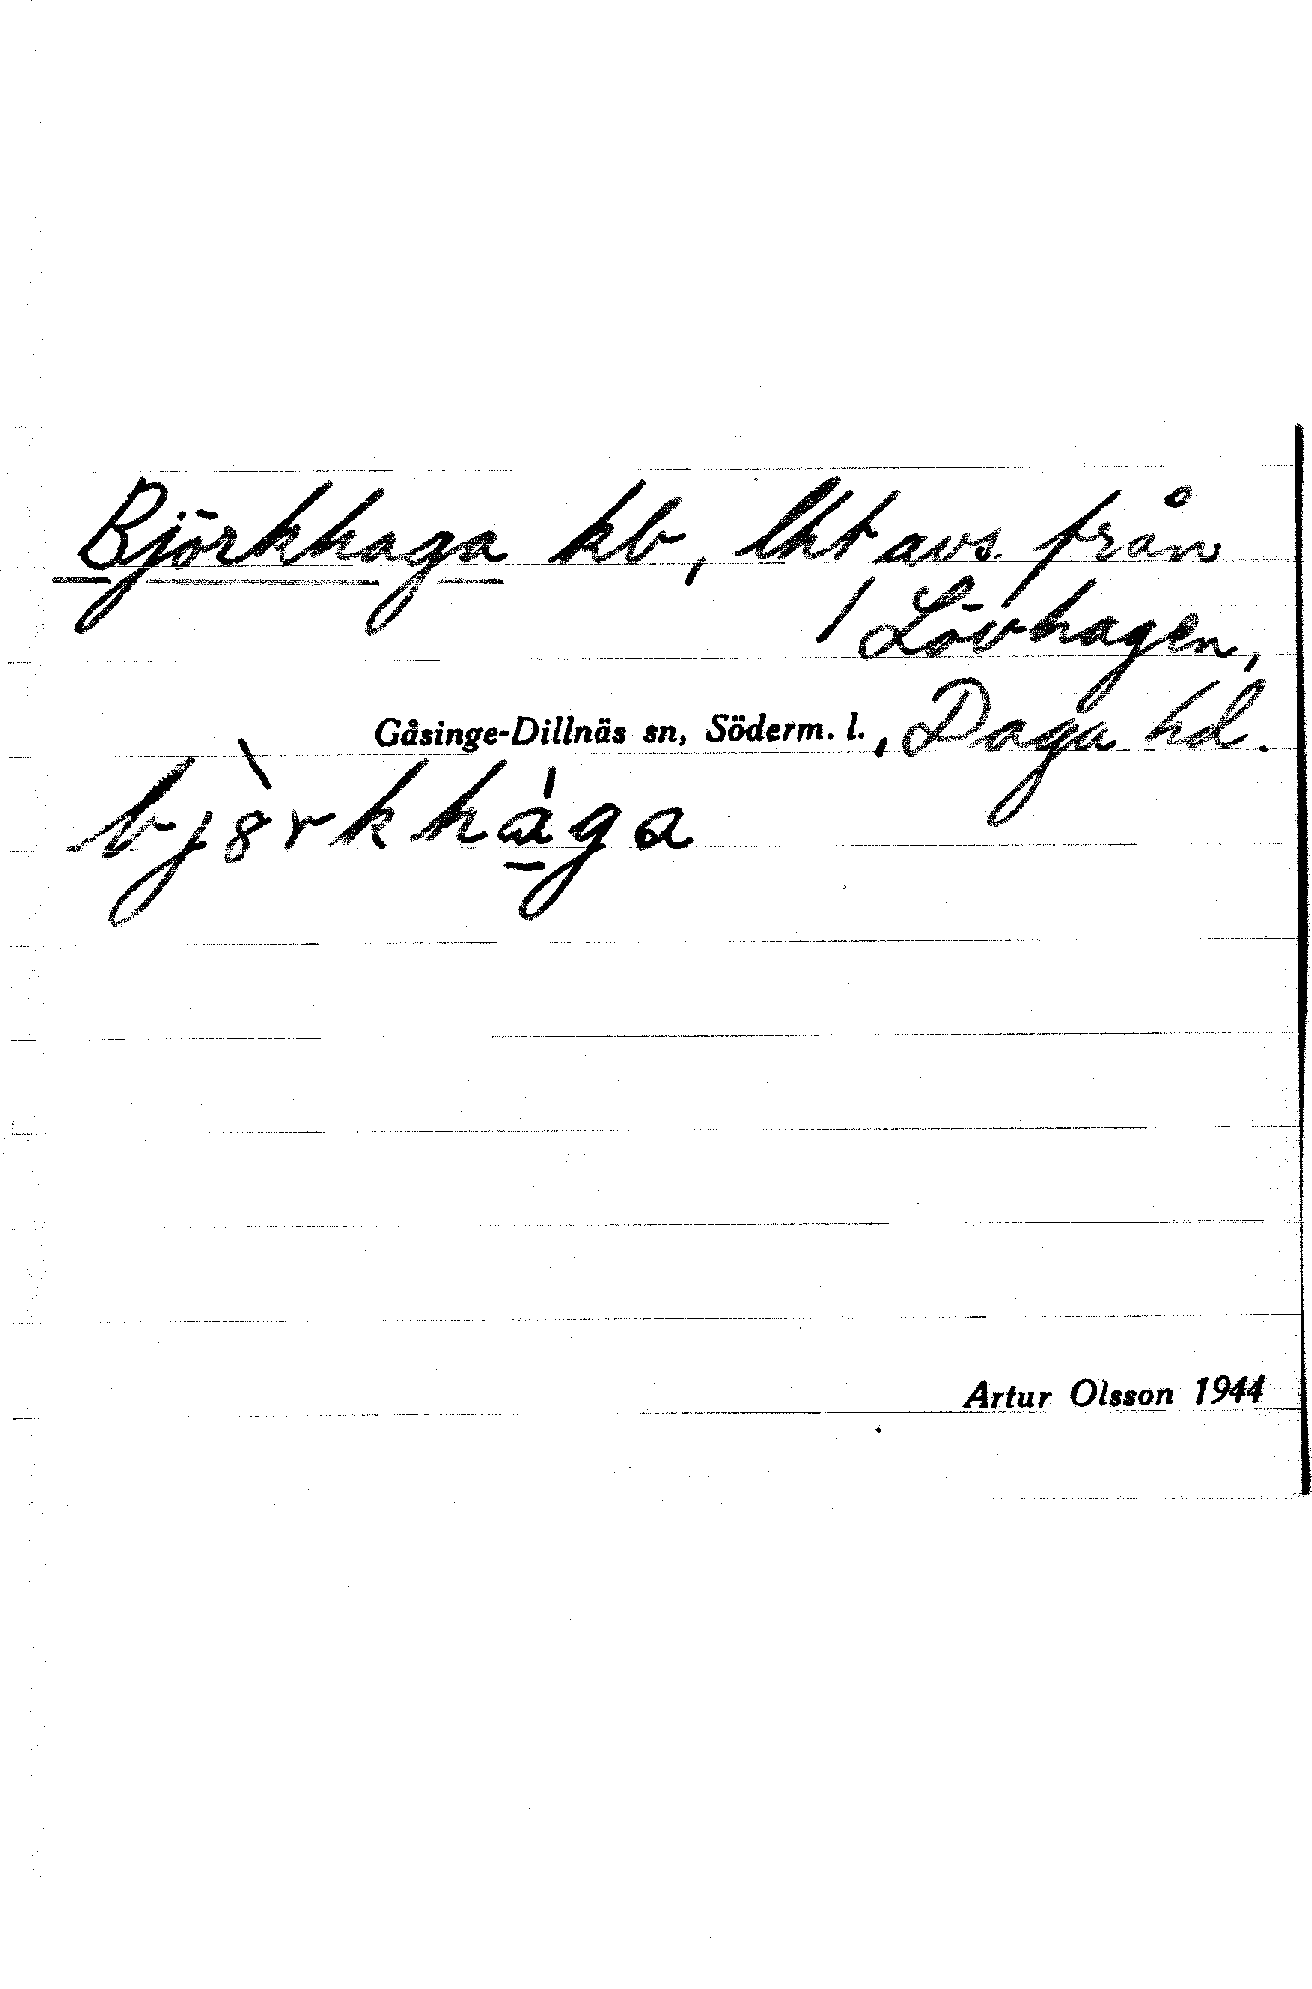 Björkhaga kb, lht avs. från
/ Lövhagen,
Gåsinge-Dillnäs sn, Söderm. l., Daga hd.
bjὸ̈rkhága
Artur Olsson 1944